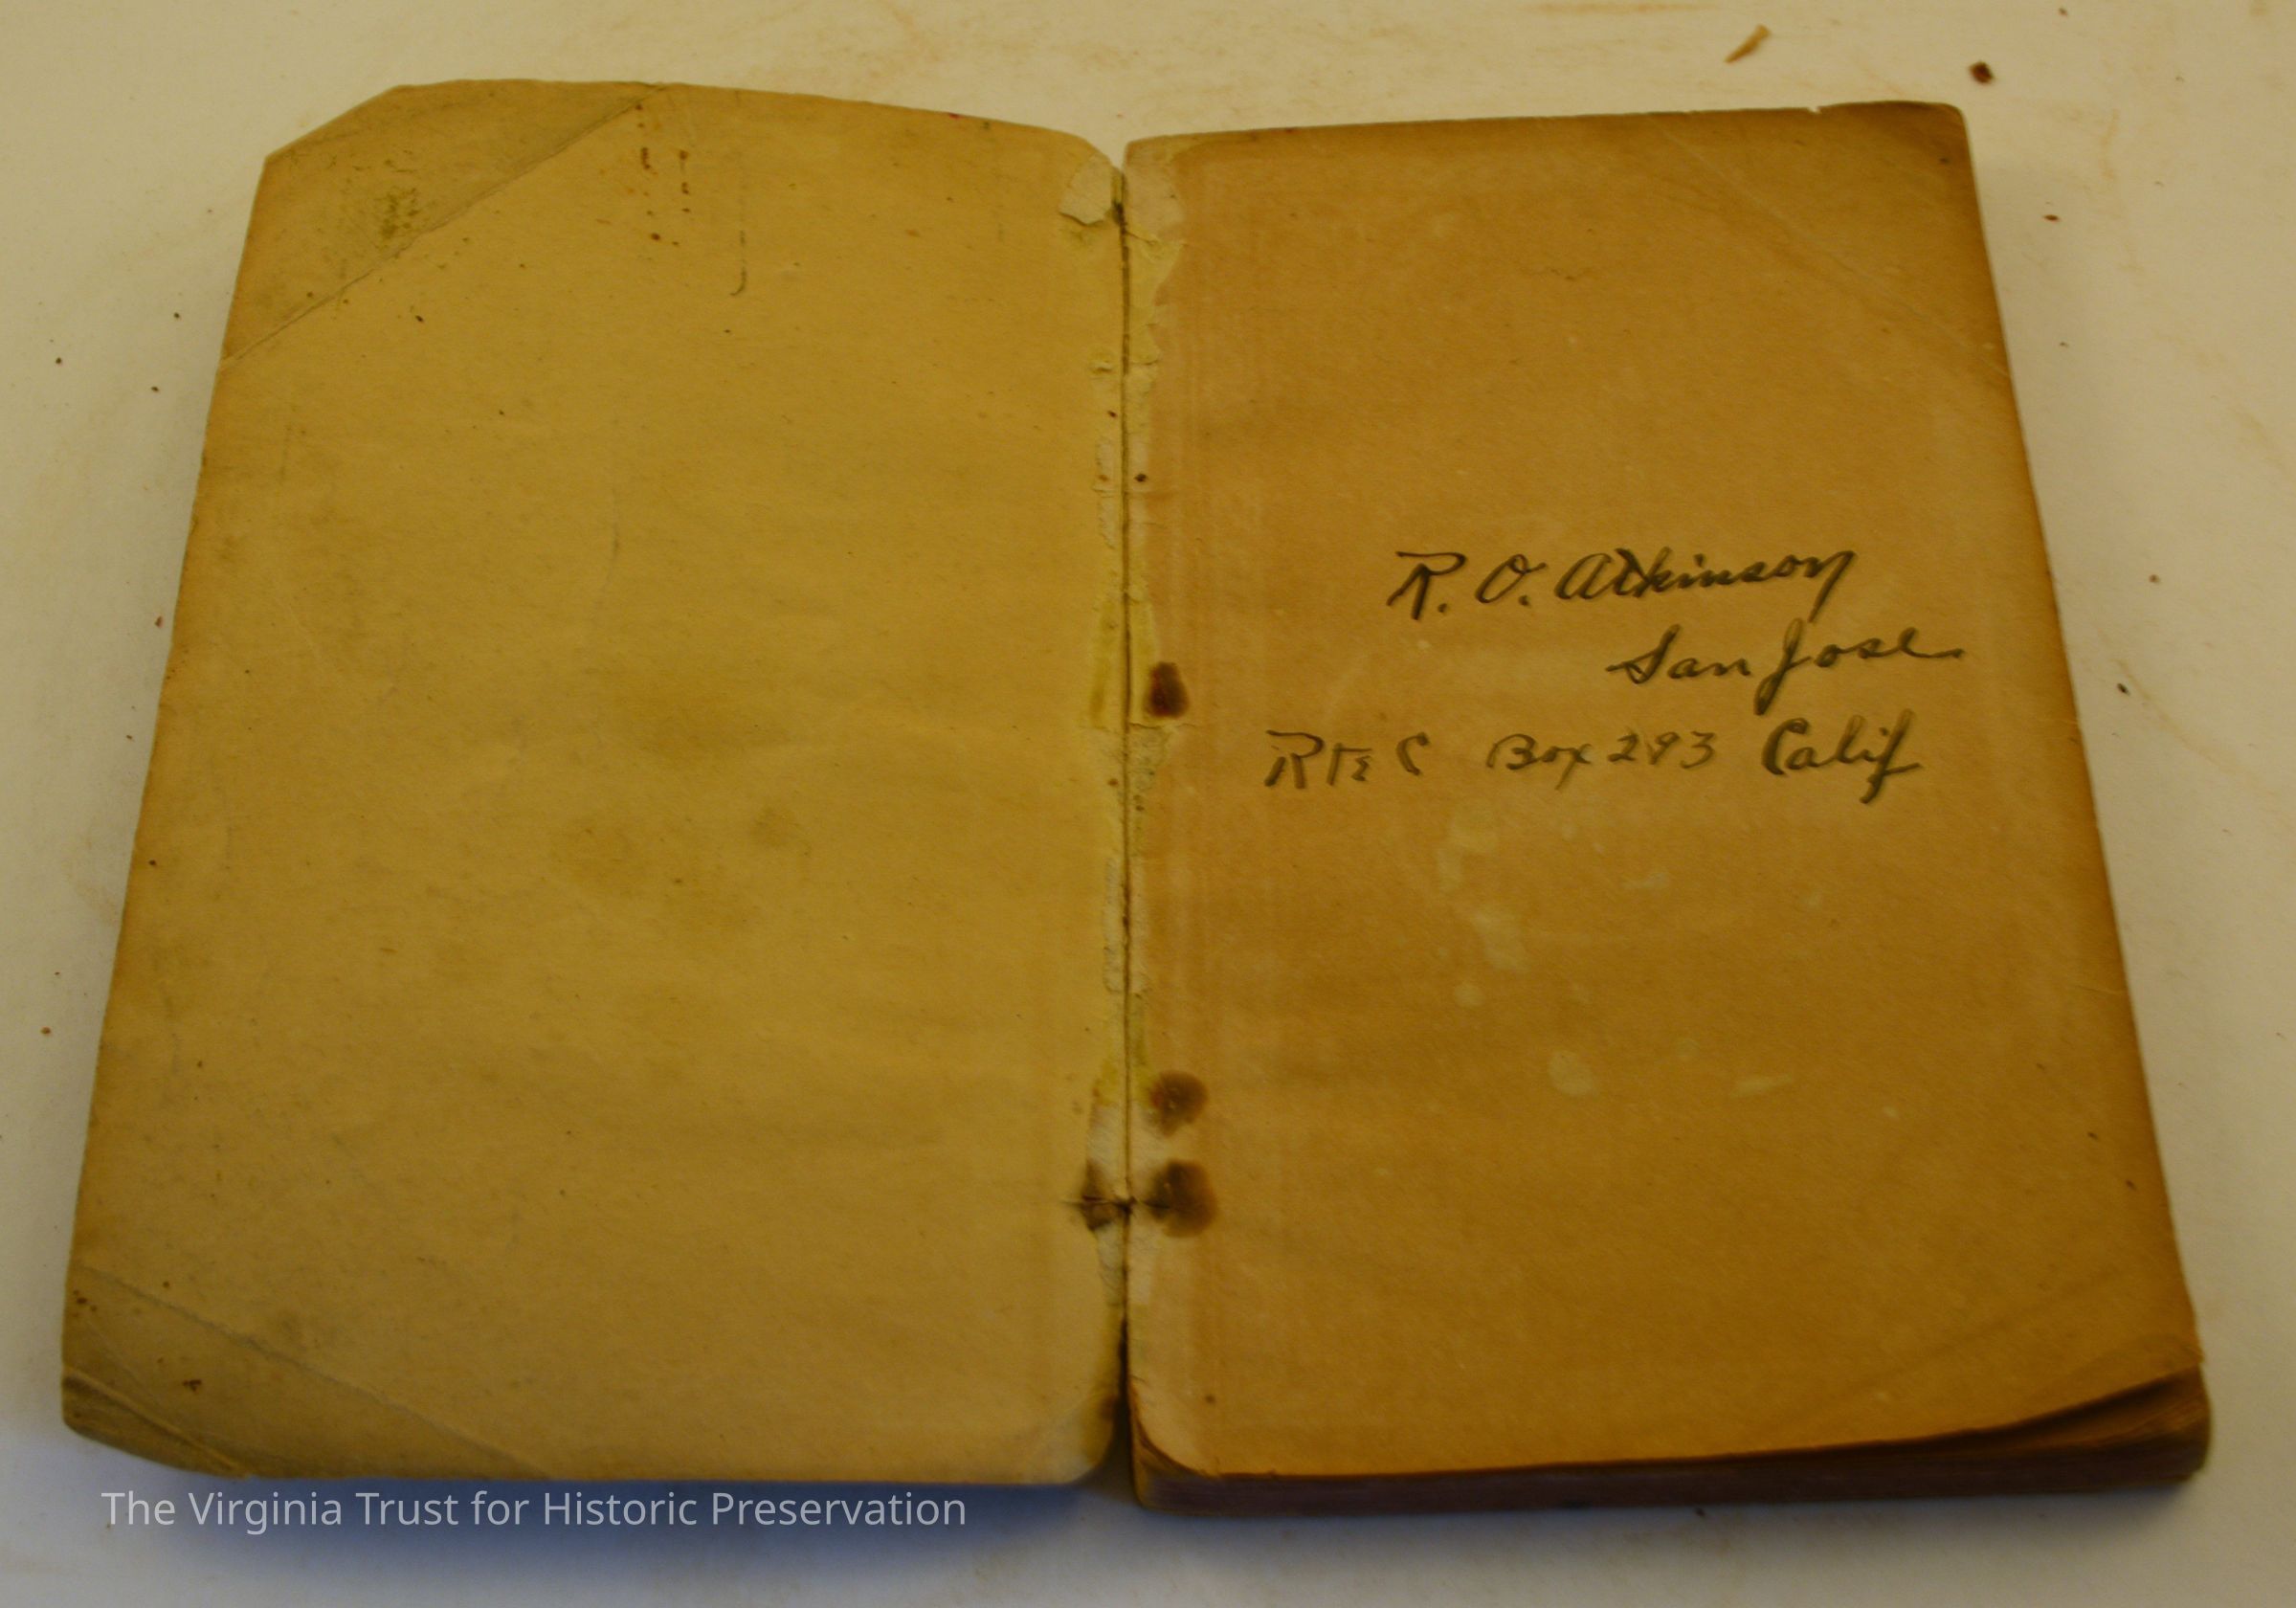 R. O. Atkinson
San Jose
Rte C Box 293 Calif
The Virginia Trust for Historic Preservation